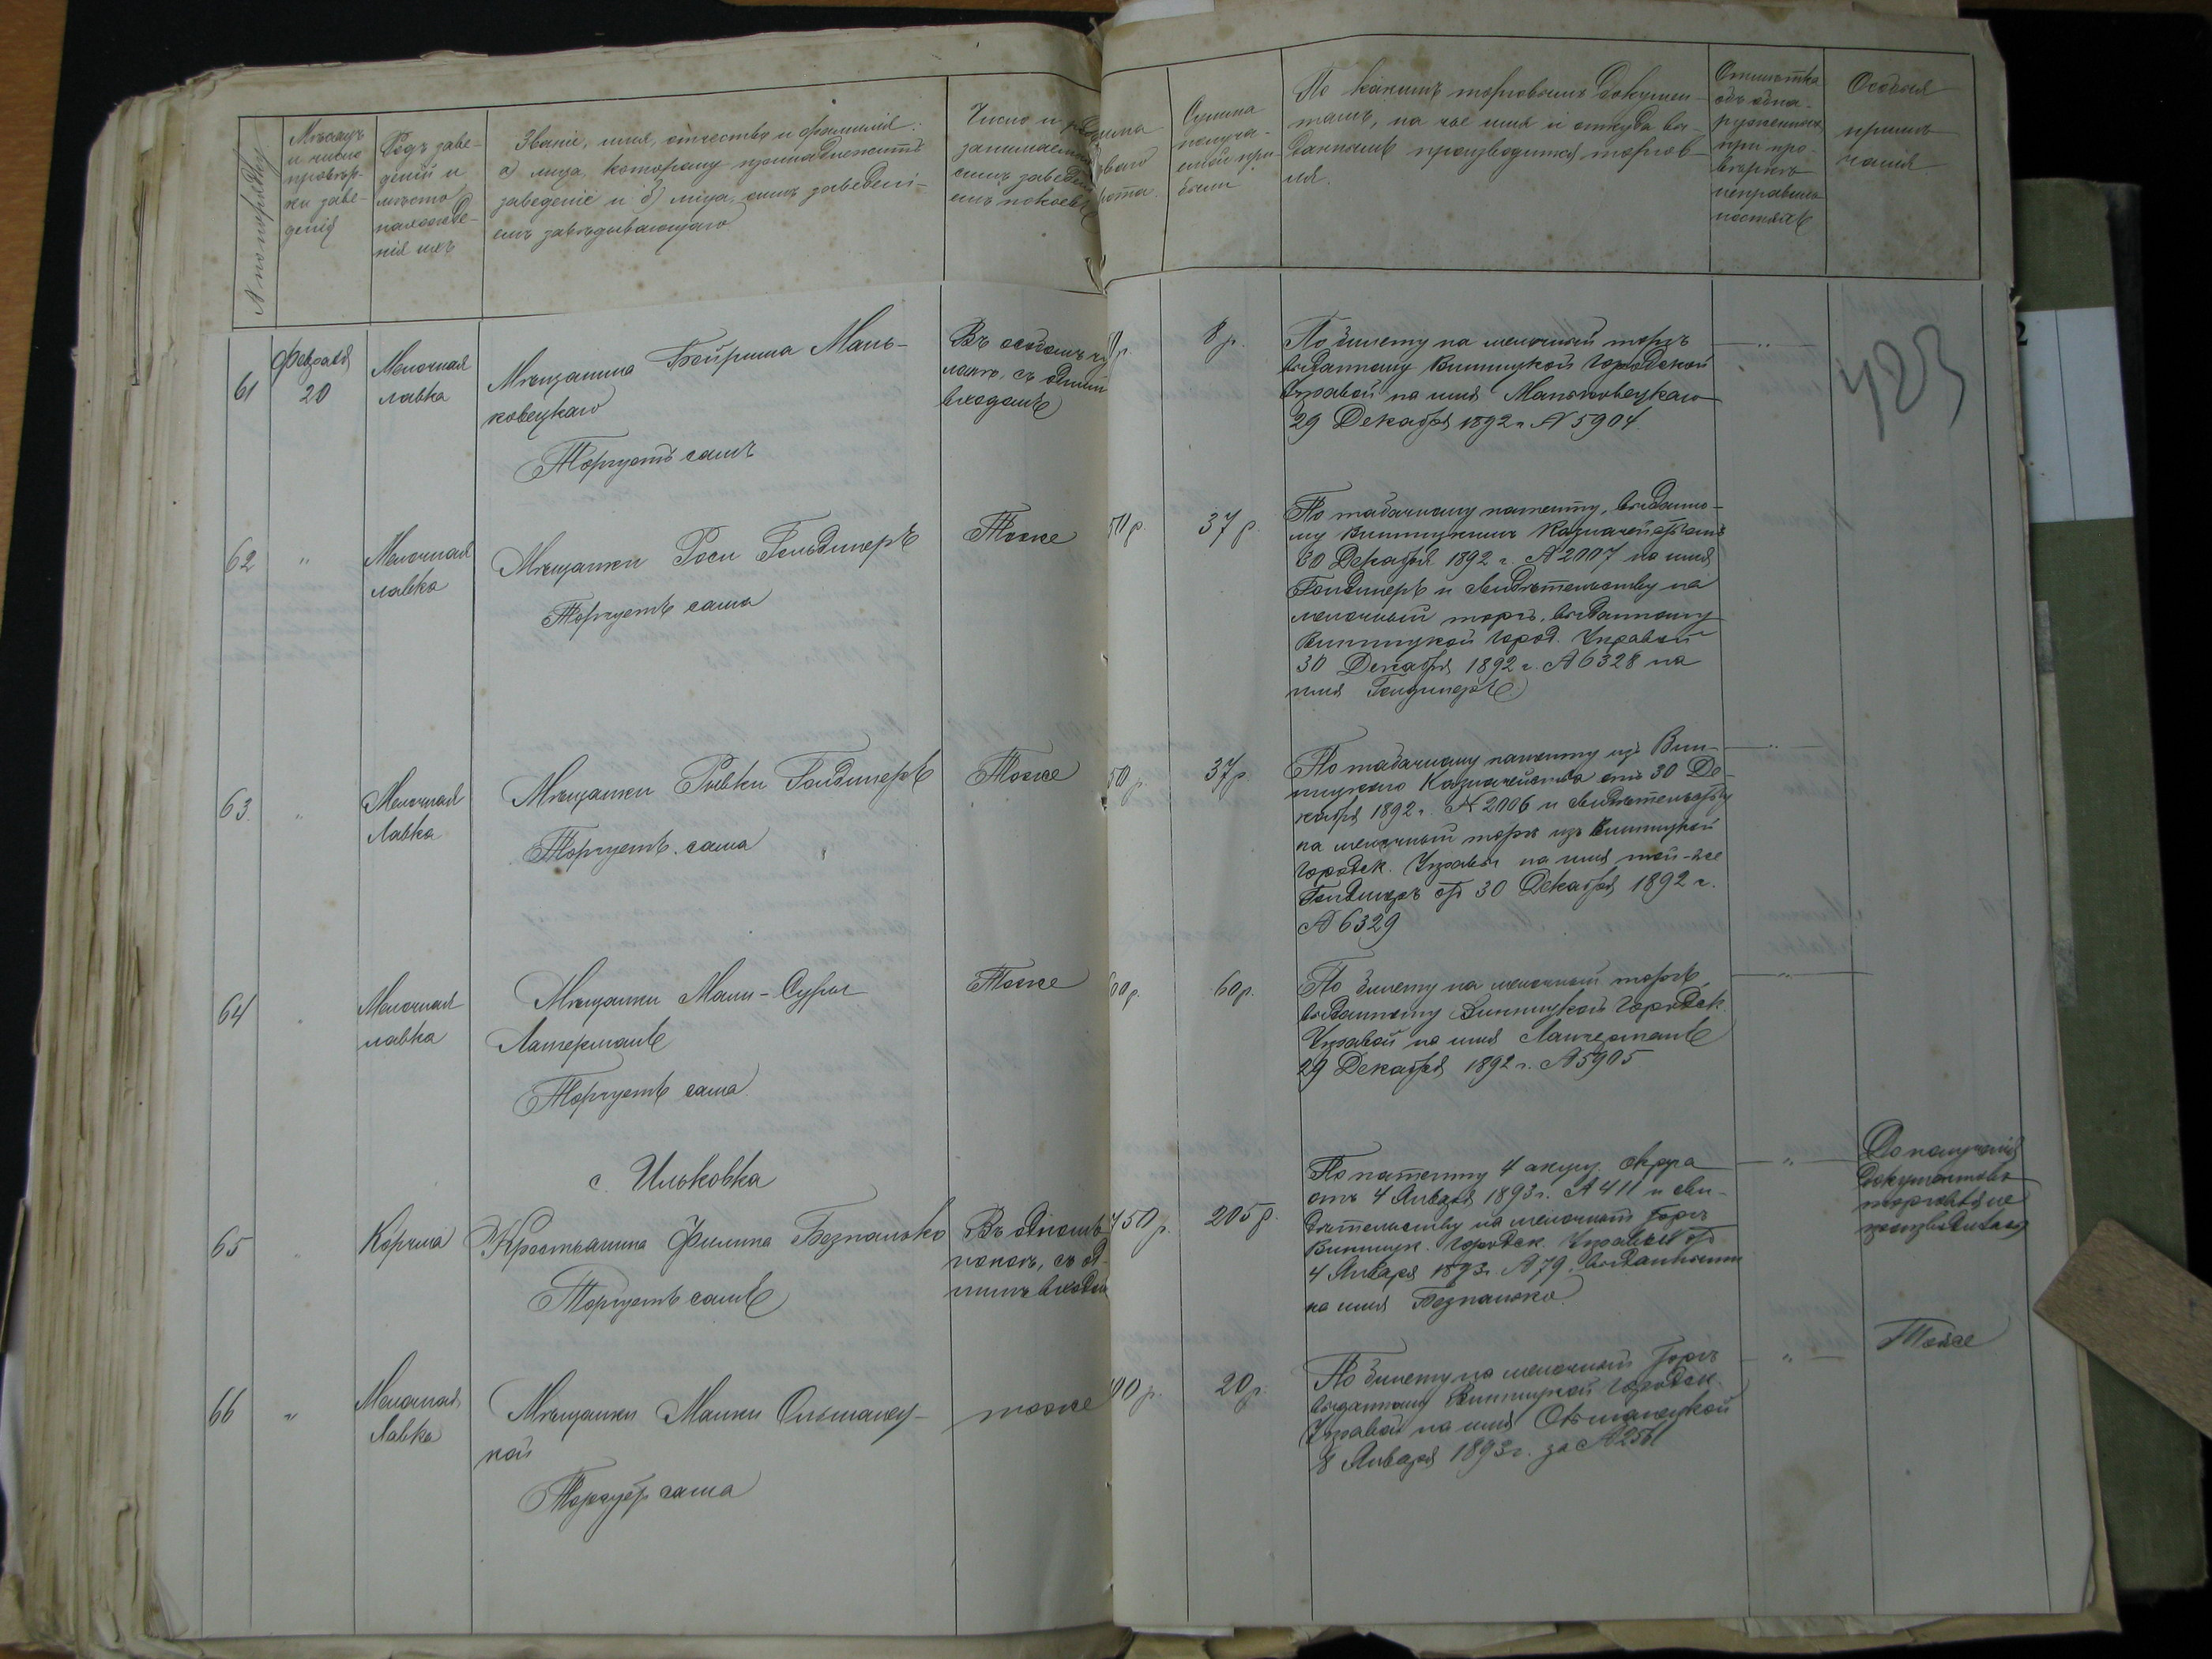 № по порядку
Мѣсяцъ
и число
провѣр-
ки заве-
денія
Родъ заве-
деній и
мѣсто
нахожде-
нія ихъ
Званіе, имя, отчество и фамилія:
а) лица, которому принадлежитъ
заведеніе и б) лица, симъ заведені-
емъ завѣдывающаго
Число и
занимаемыхъ
симъ заведен
емъ покоевъ
Сумма
получа-
емой при-
были
По какимъ торговымъ докумен-
тамъ, на чье имя и откуда вы-
даннымъ производится торгов-
ля.
Отмѣтка
объ обна-
руженныхъ
при про-
вѣркѣ
неправиль-
ностяхъ
Особыя
примѣ-
чанія
423
61
Февраля
20
Мелочная
лавка
Мѣщанина Бейриша Мань-
ковецкаго
Торгуетъ самъ
Въ особомъ чу
ланѣ, съ однимъ
входомъ
8 р.
По билету на мелочный торгъ
выданному Винницкой Городской
Управой на имя Маньковецкаго
29 Декабря 1892 г. № 5904.
62
"
Мелочная
лавка
Мѣщанки Роси Гольдинеръ
Торгуетъ сама
Тоже
50 р.
37 р.
По табачному патенту, выданно-
му Винницкимъ Казначействомъ
30 Декабря 1892 г. № 2007 на имя
Голдинеръ и свидѣтельству на
мелочный торгъ, выданному
Винницкой Город. Управой
30 Декабря 1892 г. № 6328 на
имя Голдинеръ
63
"
Мелочная
Лавка
Мѣщанки Рывки Голдинеръ
Торгуетъ сама
Тоже
50 р.
37 р.
По табачному патенту изъ Вин-
ницкаго Казначейства отъ 30 Де-
кабря 1892 г. № 2006 и свидѣтельству
на мелочный торгъ изъ Винницкой
Городск. Управы на имя той-же
Голдинеръ отъ 30 Декабря 1892 г.
№ 6329
64
"
Мелочная
лавка
Мѣщанки Мали-Суры
Латерманъ
Торгуетъ сама.
Тоже
60 р.
По билету на мелочный торгъ,
выданному Винницкой Городск.
Управой на имя
29 Декабря 1892 г. № 5905
с. Ильковка
65
"
Корчма
Крестьянина Филипа Безпалько
Торгуетъ самъ
Въ одномъ
покоѣ, съ од-
нимъ входом
450 р.
205 р.
По патенту 4 акциз. округа
отъ 4 Января 1893 г. № 411 и сви-
дѣтельству на мелочный торгъ
Винницк. Городск. Управы отъ
4 Января 1893 г. № 79, выданнымъ
на имя Безпалько.
До полученія
документовъ
торговля не
производилась
66
"
Мелочная
Лавка
Мѣщанки Малки Ольшанец-
кой
Торгуетъ сама
тоже
00 р.
20 р.
По билету на мелочный торгъ
выданному Винницкой Городск.
Управой на имя Ольшанецкой
8 Января 1893 г. за №
Тоже